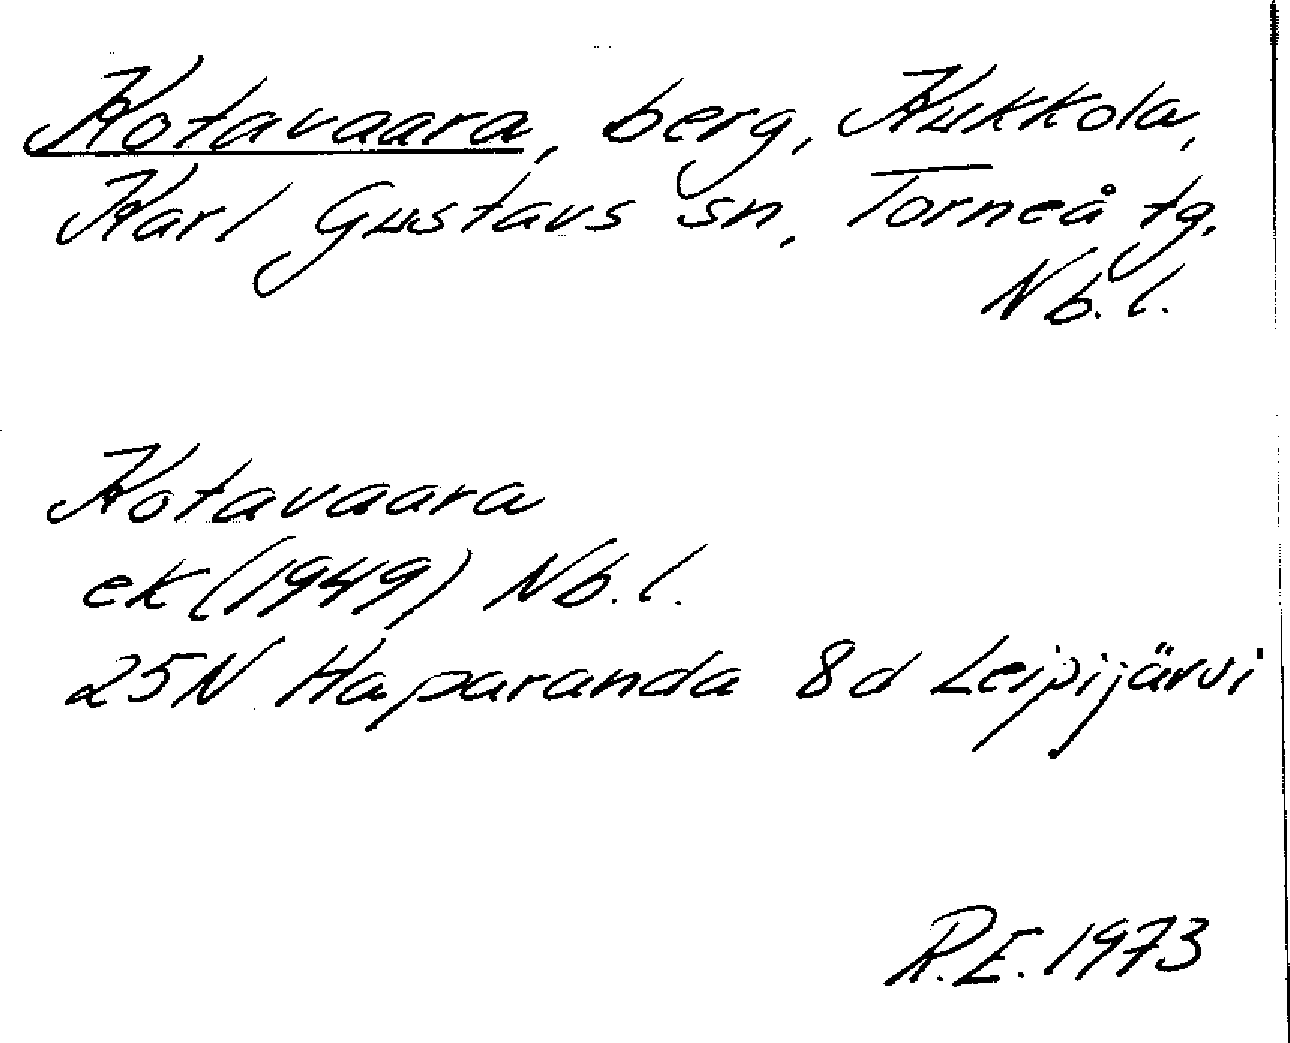 Kotavaara, berg, Kukkola,
Karl Gustavs sn, Torneå tg,
Nb. l.
Kotavaara
ek (1949) Nb. l.
25N Haparanda 8d Leipijärvi
R.E. 1973